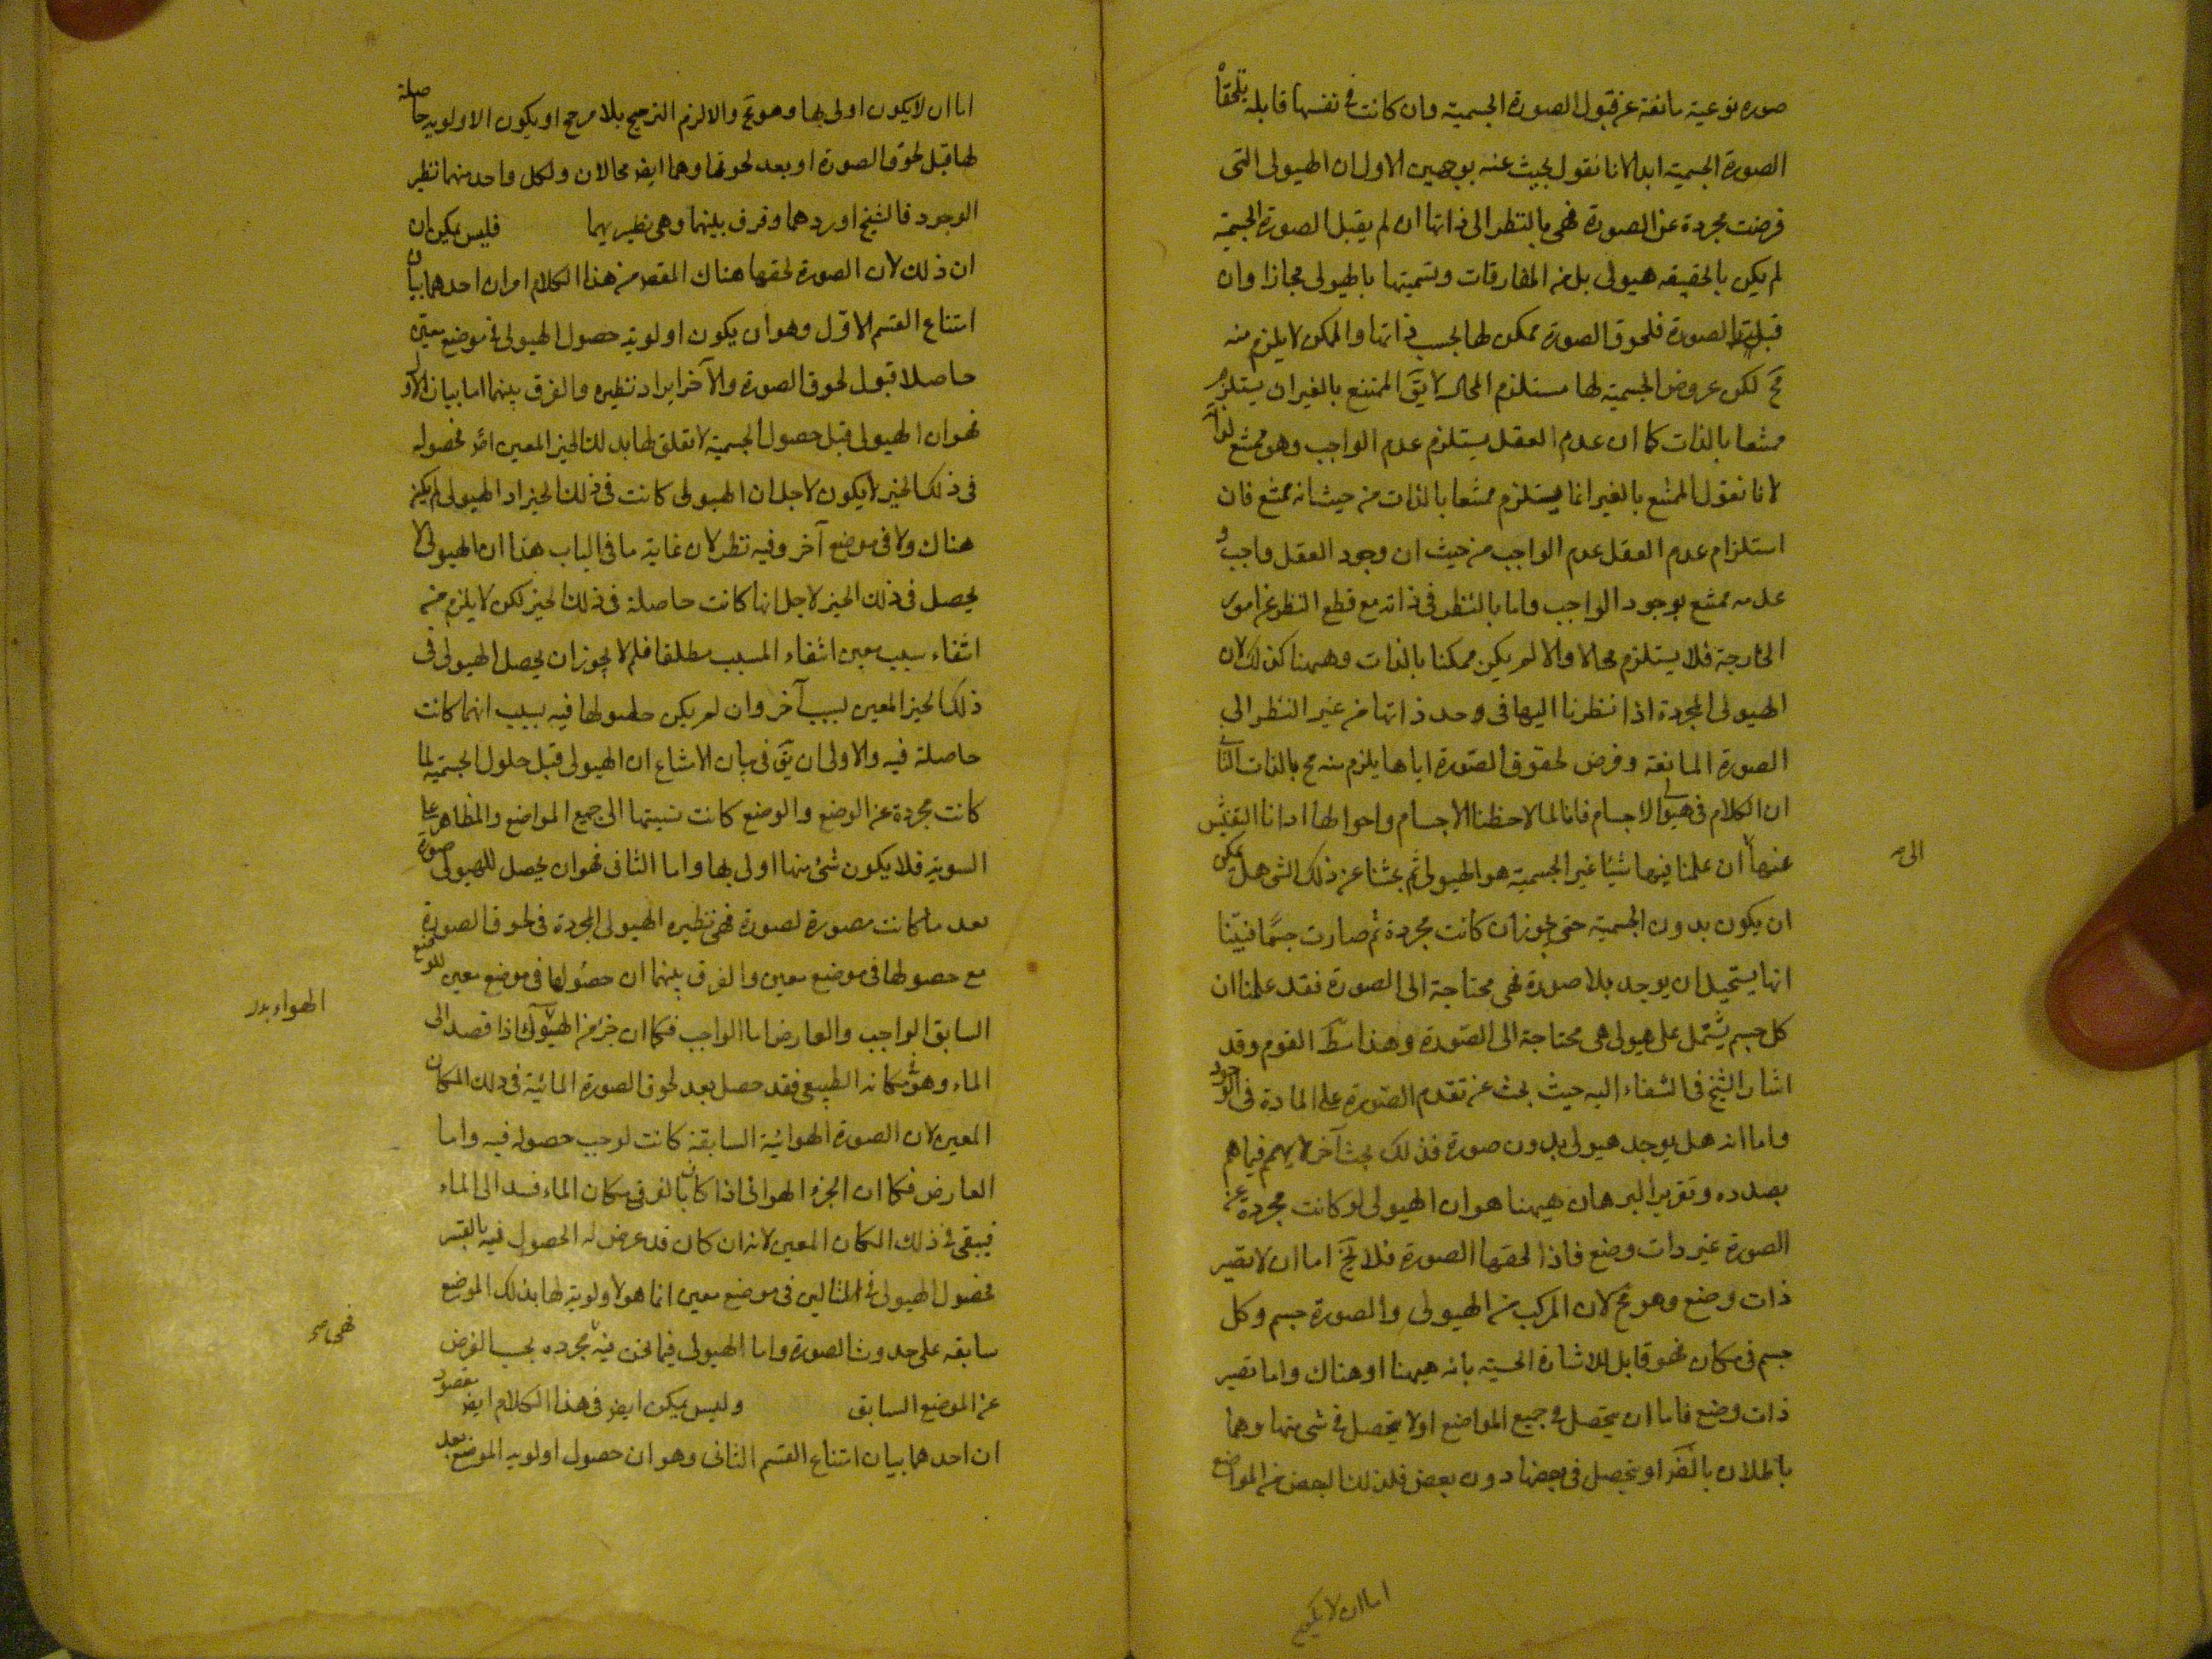 صوره نوعية مانعة عن قبول الصورة الجسمية وان كانت فى نفسها قابلة تلحقا
الصورة الجسمية ابدا لانا نقول يجيب عنه بوجهين الاول ان الهيولى التى
فرضت مجردة عن الصورة فهى بالنظر الى ذاتها ان لم يقبل الصورة الجسمية
لم يكن بالحقيقه هيولى بل من المفارقات وتسميتها بالهيولى مجازا وان
قبلت الصورة فلحوق الصورة ممكن لها بحسب ذاتها والممكن لا يلزم منه
مح لكن عروض الجسمية لها مستلزم المحال لا يق الممتنع بالغير ان يستلزم
ممتنعا بالذات كما ان عدم العقل يستلزم عدم الواجب وهو ممتنع لذاته
لانا نقول الممتنع بالغير انما يستلزم ممتنعا بالذات من حيث انه ممتنع فان
استلزام عدم العقل عدم الواجب من حيث ان وجود العقل واجب و
عدمه ممتنع بوجود الواجب واما بالنظر فى ذاته مع قطع النظر عن امور
الخارجة فلا يستلزم محالا والا لم يكن ممكنا بالذات وههنا كذلك لان
الهيولى المجردة اذا نظرنا اليها فى وحد ذاتها من غير النظر الى
الصورة المانعة وفرض لحقوق الصورة اياها يلزم منه مح بالذات الثانى
ان الكلام فى هيولى الاجسام فانا لما لاحظنا الاجسام واحوالها ادانا التفتيش
عنها الى ان علمنا فيها شيئا غير الجسمية هو الهيولى ثم بحثنا عن ذلك الشى هل يمكن
ان يكون بدون الجسمية حتى يجوز ان كانت مجردة ثم صارت جسما فبينا
انها يستحيل ان يوجد بلا صورة فهى محتاجة الى الصورة فقد علمنا ان
كل جسم يشتمل على هيولى هى محتاجة الى الصورة وهذا مسلك القوم وقد
اشار الشيخ فى الشفاء اليه حيث بحث عن تقدم الصورة على المادة فى الوجود
واما انه هل يوجد هيولى بدون صورة فذلك بحث آخر لا يهم فيما هم
بصدده وتقرير البرهان ههنا هو ان الهيولى لو كانت مجردة عن
الصورة غير ذات وضع فاذا لحقها الصورة فلا يخ اما ان لا تصير
ذات وضع وهو مح لان المركب من الهيولى والصورة جسم وكل
جسم فى مكان فهو قابل للاشارة الحسيه بانه ههنا او هناك واما تصير
ذات وضع فاما ان يتحصل فى جميع المواضع او لا يتحصل فى شى منها وهما
باطلان بالضر او يتحصل فى بعضها دون بعض فلذلك البعض من المواضع
اما ان لا يكون
اما ان لا يكون اولى بها وهو مح والا لزم الترجيح بلا مرجح او يكون الاولوية حاصلة
لها قبل لحوق الصورة او بعد لحوقها وهما ايض محالان ولكل واحد منهما نظير
الوجود فالشيخ اوردهما وفرق بينهما وهى نظيريهما فليس يمكن ان
ان ذلك لان الصورة لحقها هناك المقصد من هذا الكلام امران احدهما بيان
امتناع القسم الاول وهو ان يكون اولوية حصول الهيولى فى موضع معين
حاصلا قبول لحوق الصورة والآخر ايراد نظيره والفرق بينهما اما بيان الاول
فهو ان الهيولى قبل حصول الجسمية لا تعلق لها بذلك الحيز المعين اصلا فحصوله
فى ذلك الحيز لا يكون لاجل ان الهيولى كانت فى ذلك الحيز اذ الهيولى لم يكن
هناك ولا فى موضع آخر وفيه نظر لان غاية ما فى الباب هذا ان الهيولى لا
يحصل فى ذلك الحيز لاجل انها كانت حاصلة فى ذلك الحيز لكن لا يلزم من
انتفاء سبب معين انتفاء المسبب مطلقا فلم لا يجوز ان يحصل الهيولى فى
ذلك الحيز المعين لسبب آخر وان لم يكن حصولها فيه بسبب انها كانت
حاصلة فيه والاولى ان يق فى بيان الامتناع ان الهيولى قبل حلول الجسمية لما
كانت مجردة عن الوضع والوضع كانت نسبتها الى جميع المواضع والمظاهر على
السوية فلا يكون شئ منها اولى بها واما الثانى فهو ان يحصل للهيولى صورة
بعد ما كانت مصورة لصورة فهى نظيره الهيولى المجردة فى لحوق الصورة
مع حصولها فى موضع معين والفرق بينهما ان حصولها فى موضع معين للوضع
السابق الواجب والعارض اما الواجب فكما ان جزء من الهواء بدل الهيولى اذا قصد الى
الماء وهو مكانه الطبيعى فقد حصل بعد لحوق الصورة المائية فى ذلك المكان
المعين لان الصورة الهوائية السابقة كانت توجب حصوله فيه واما
العارض فكما ان الجزء الهوائى اذا كان بالقسر فى مكان الماء فسد الى الماء
فيبقى فى ذلك المكان المعين لانه ان كان قد عرض له الحصول فيه بالقسر
فحصول الهيولى فى المثالين فى موضع معين انما هو لاولوية لها بذلك الموضع
سابقه على حدوث الصورة واما الهيولى فيما نحن فيه فهى مجرده بحسب الفرض
عن الموضع السابق وليس يمكن ايض فى هذا الكلام ايض مقصود
ان احدهما بيان امتناع القسم الثانى وهو ان حصول اولوية الموضع بعد